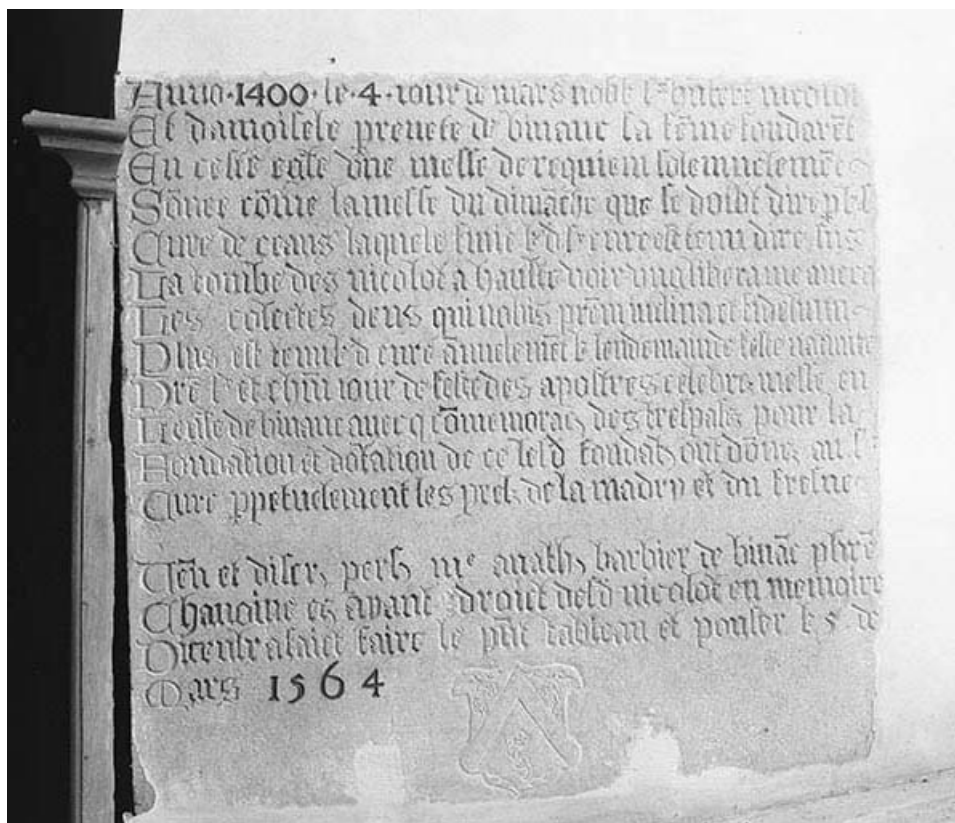 Anno · 1400 · le · 4 · iour de mars noble hubert nicolot
Et damoisele prenete de binanc sa fēme fondarēt
En ceste eglē dūne messe de requiem solemnelemēt
Sōnee cōme la messe du dimāche que se doibt dire
Cure de ceans laquele finie cure est tenu dire sus
La tombe des nicolot a haulte voix ung libera me avecq
Les colectes deus qui nobis inclina et fidelium
Plus est tenu cure ānuelemēt le lendemain de feste nativite
iour de feste des apostres celebre messe en
de binanc avec q cōmemorac des trespasses pour la
Fondation et dotation de ce lesd fondat ont done au
Cure ꝑpetuelement les de la madry et du fresne
Vēn et discr pers mᵉ barbier de bināc
Chanoine et ayant droict desd nicolot en memoire
a faict faire le pūt tableau et pouser le 5 de
Mars 1564